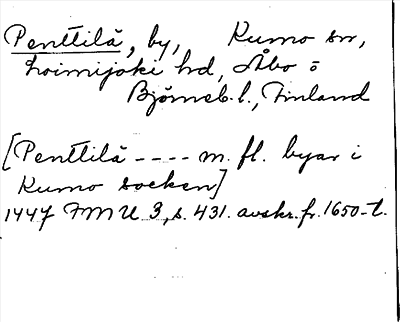 Penttilä, by, Kumo sn,
Loimijoki hd, Åbo o
Björneb. l., Finland
[Penttilä - - - - m. fl. byar i
Kumo socken]
1447 FMU 3, s. 431. avskr. fr. 1650-t.